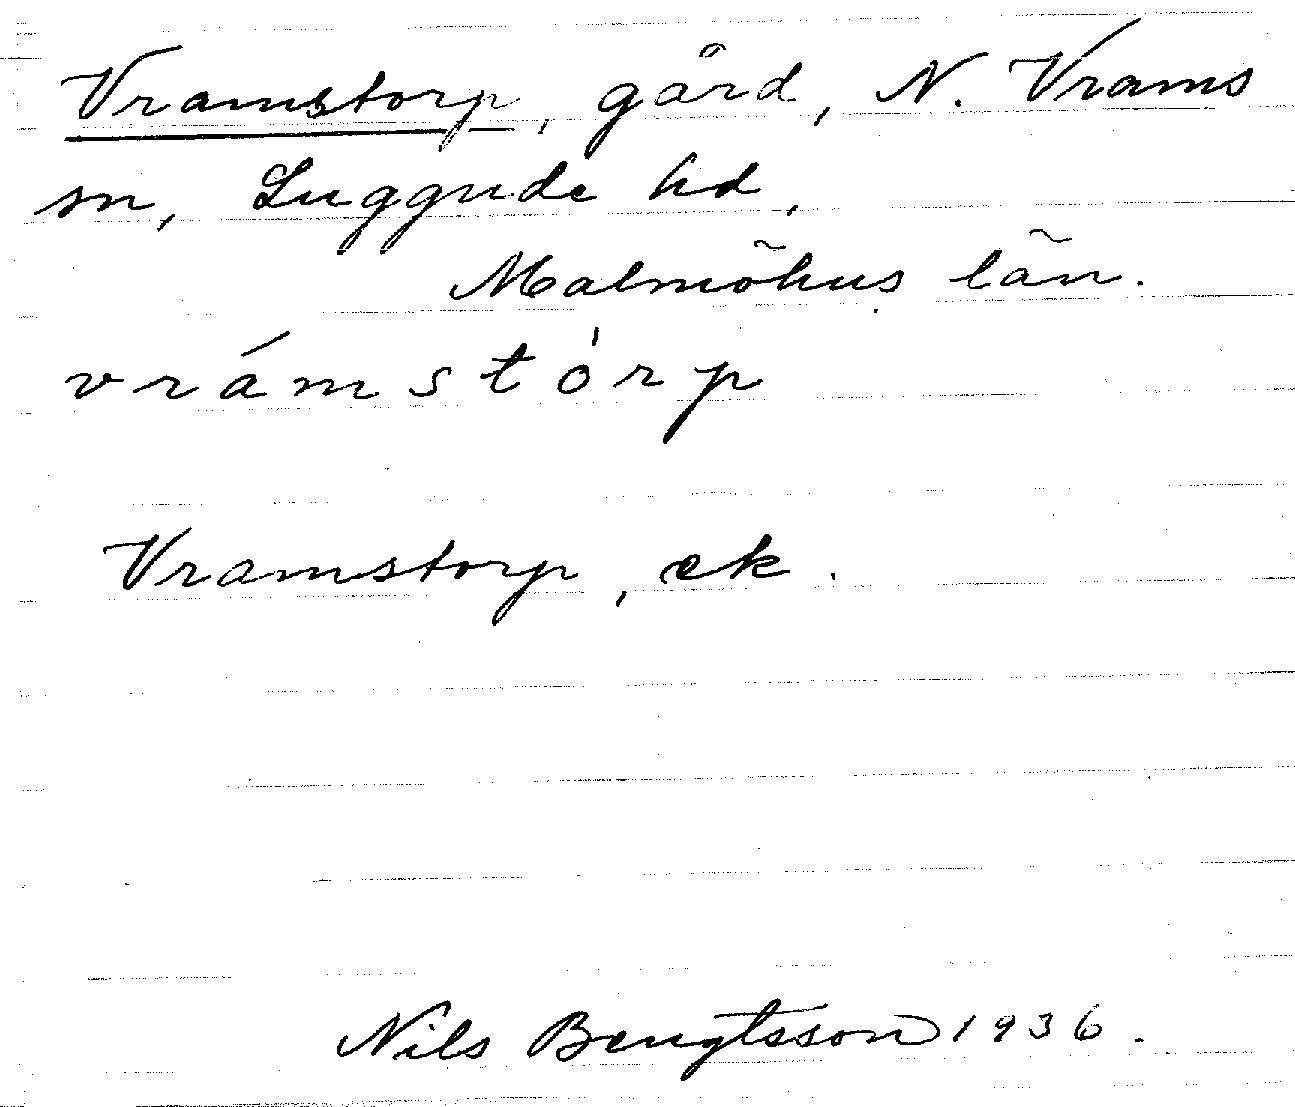 Vramstorp, gård, N. Vrams
sn, Luggude hd,
Malmöhus län.
vrámstórp
Vramstorp, ek.
Nils Bengtsson 1936.